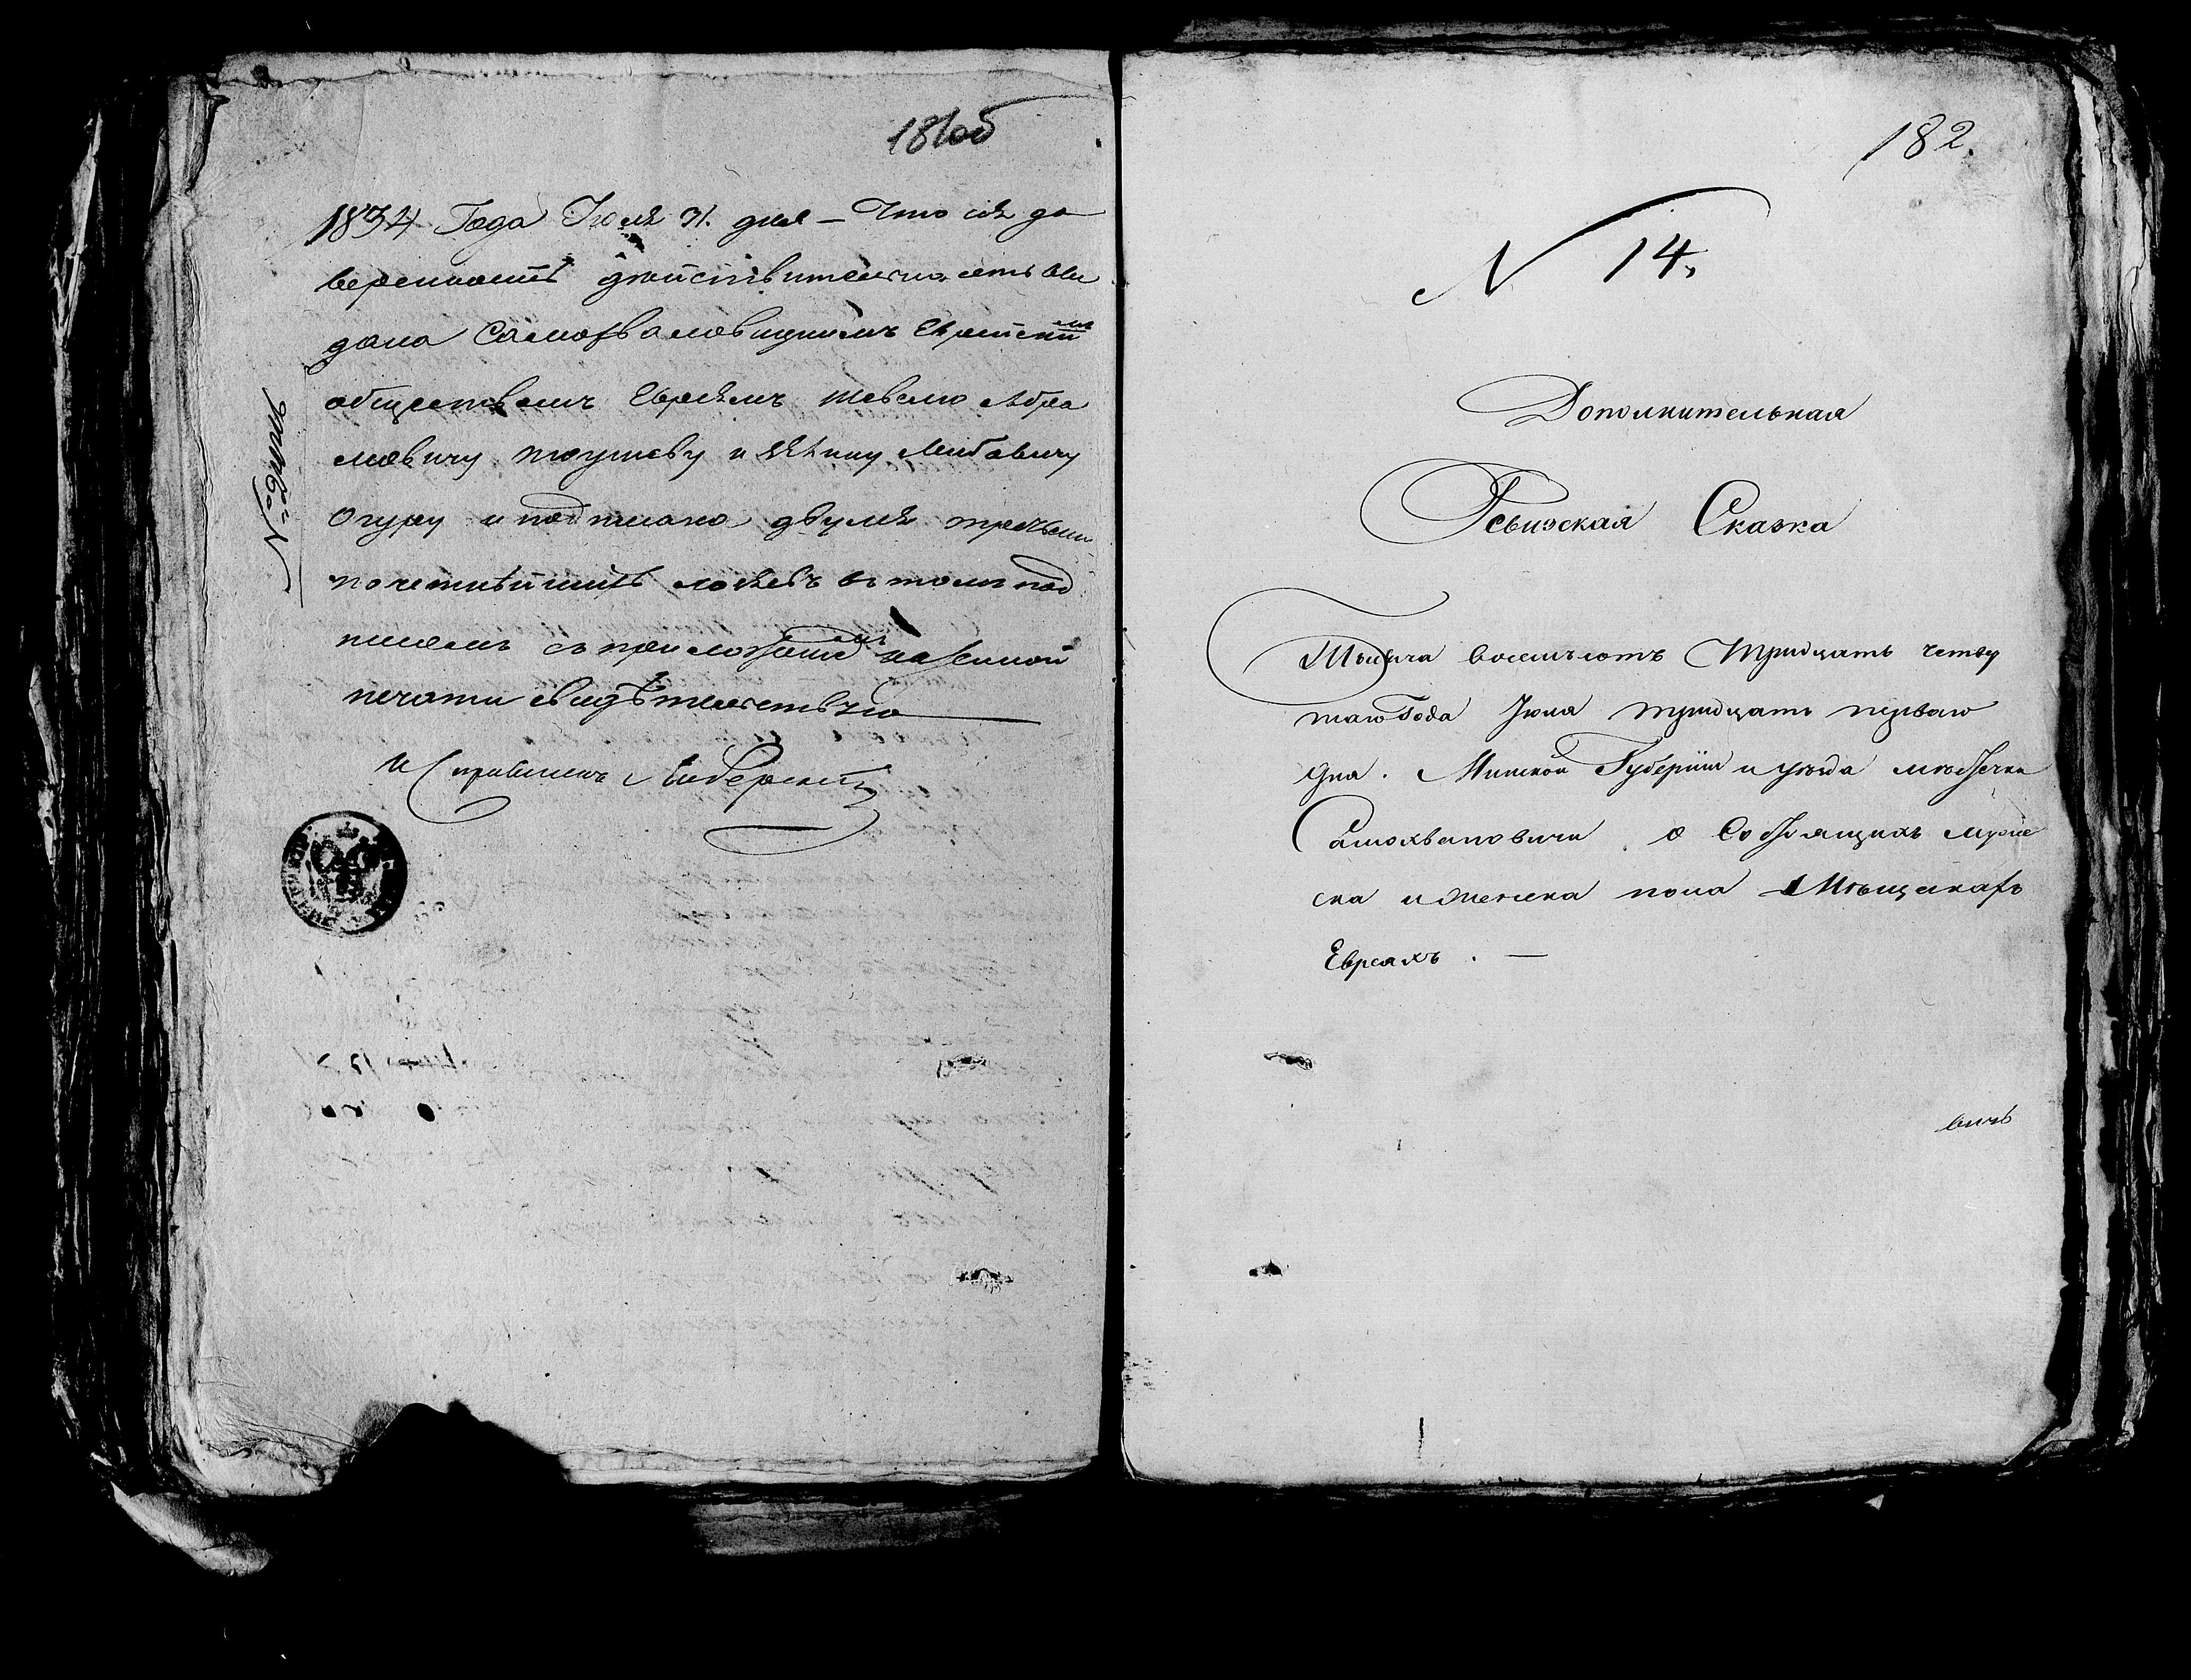 181об
1834 Года Июля 31. дня – Что сія до
веренность действительно есть вы
дана Самохваловицкимъ Еврейским
обществомъ Евреямъ Шевелю Абра
мовичу и Лейбовичу
Огуру и подписано двумя
почетнейшихъ въ томъ под
писомъ съ приложеніемъ казенной
печати свидѣтельствую
Исправникъ
182.
N 14.
Дополнительная
Ревизская Сказка
Тысяча восемьсотъ Тридцать четвер
таго Года Июля тридцать перваго
дня. Минской Губерніи и уезда местечка
Самохваловичи о Состоящихъ мужес
ка и женска пола Мѣщанахъ
Евреяхъ. —
вичъ